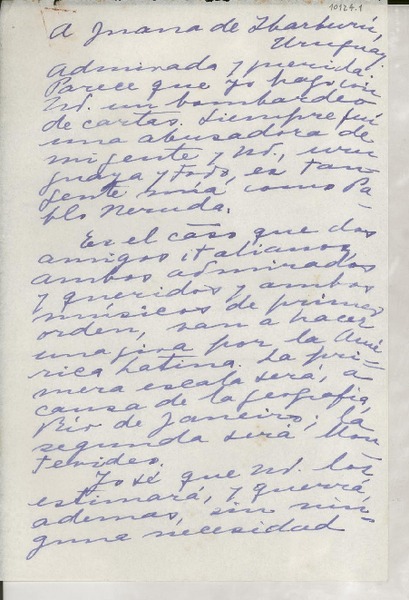 10124.1
A Juana de Ibarburú,
Uruguay.
Admirada y querida:
Parece que yo hago con
Ud. un bombardeo
de cartas. Siempre fuí
una abusadora de
mi gente y Ud., uru-
guaya y todo, es tan
gente mía como Pa-
blo Neruda.
Es el caso que dos
amigos italianos,
ambos admirados
y queridos y ambos
músicos de primer
orden, van a hacer
una jira por la Amé-
rica Latina. La pri-
mera escala será, a
causa de la geografía,
Río de Janeiro; la
segunda será Mon-
tevideo.
Yo sé que Ud. los
estimará, y querrá
además, sin nin-
guna necesidad